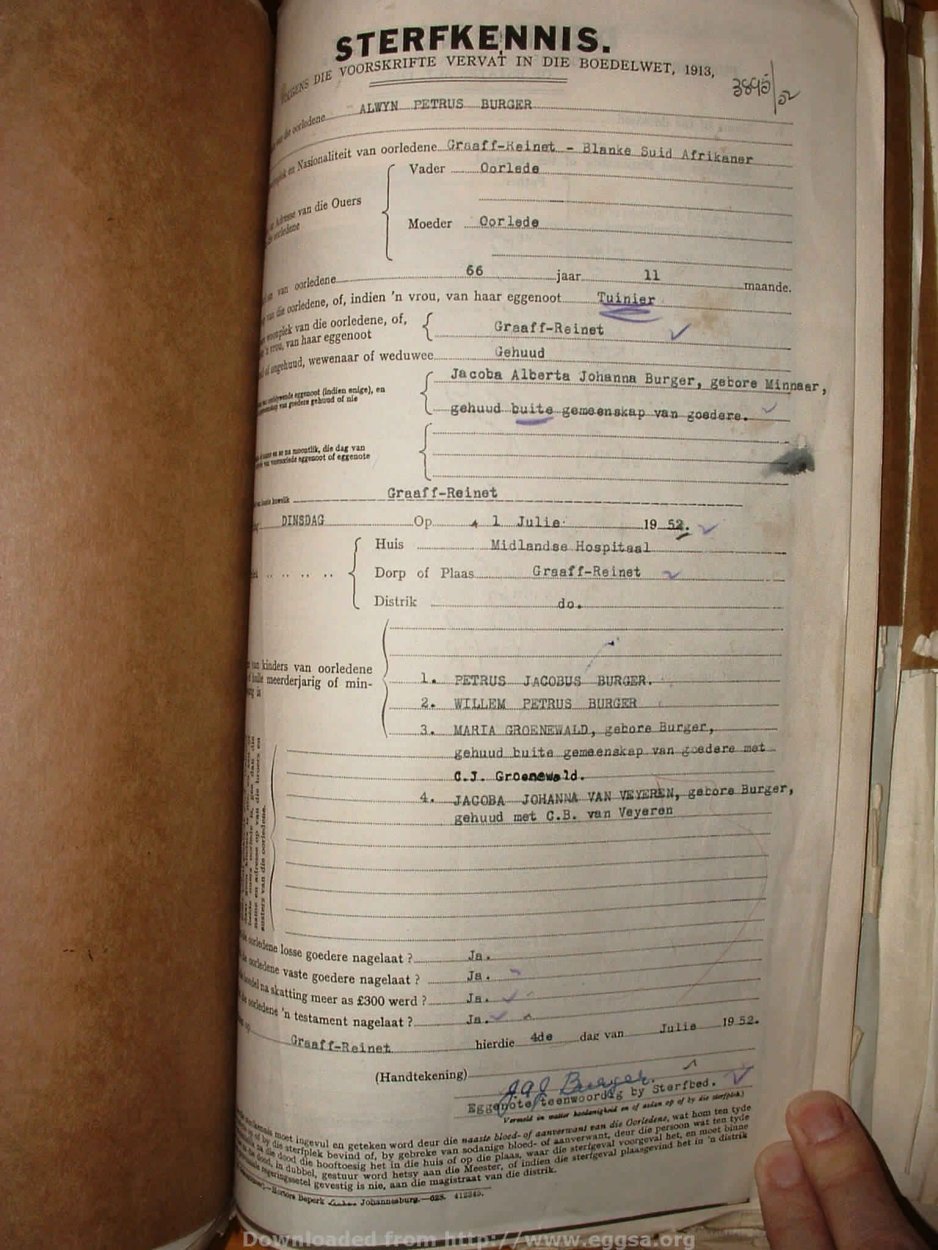 STERFKENNIS.
DIE VOORSKRIFTE VERVAT IN DIE BOEDELWET, 1913,
3895/52
van die oorledene ALWYN PETRUS BURGER
en Nasionaliteit van oorledene Graaff-Reinet - Blanke Suid Afrikaner
Vader Oorlede
Adresse van die Ouers
oorledene
Moeder Oorlede
van oorledene 66 jaar 11 maande.
van die oorledene, of, indien 'n vrou, van haar eggenoot Tuinier
woonplek van die oorledene, of,
'n vrou, van haar eggenoot
Graaff-Reinet
of ongehuud, wewenaar of weduwee Gehuud
Jacoba Alberta Johanna Burger, gebore Minnaar,
eggenoot (indien enige), en
van goedere gehuud of nie
gehuud buite gemeenskap van goedere.
en so na moontlik, die dag van
eggenoot of eggenote
huwelik Graaff-Reinet
DINSDAG Op 1 Julie 19 52.
Huis Midlandse Hospitaal
Dorp of Plaas Graaff-Reinet
Distrik do.
van kinders van oorledene
hulle meerderjarig of min-
is
1. PETRUS JACOBUS BURGER.
2. WILLEM PETRUS BURGER
3. MARIA GROENEWALD, gebore Burger,
gehuud buite gemeenskap van goedere met
C.J. Groenewald.
4. JACOBA JOHANNA VAN VEYEREN, gebore Burger,
gehuud met C.B. van Veyeren
oorledene losse goedere nagelaat ? Ja.
oorledene vaste goedere nagelaat ? Ja.
boedel na skatting meer as £300 werd ? Ja.
oorledene 'n testament nagelaat ? Ja.
op Graaff-Reinet hierdie 4de dag van Julie 19 52.
(Handtekening) J.A.J. Burger.
Eggenote, teenwoordig by Sterfbed.
Vermeld in watter hoedanigheid en of aldan op of by die sterfplek)
moet ingevul en geteken word deur die naaste bloed- of aanverwant van die Oorledene, wat hom ten tyde
of by die sterfplek bevind of, by gebreke van sodanige bloed- of aanverwant, deur die persoon wat ten tyde
die dood die hooftoesig het in die huis of op die plaas, waar die sterfgeval voorgeval het, en moet binne
dood, in dubbel, gestuur word hetsy aan die Meester, of indien die sterfgeval plaasgevind het in 'n distrik
gevestig is nie, aan die magistraat van die distrik.
Hortors Beperk Johannesburg.—028. 412345.
Downloaded from http://www.eggsa.org